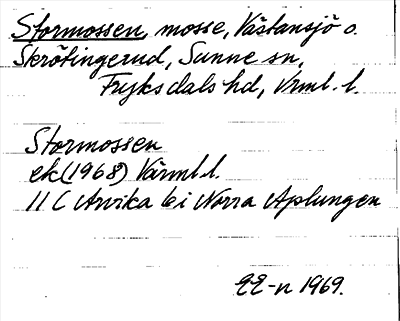 Stormossen, mosse, Västansjö o.
Skrötingerud, Sunne sn,
Fryksdals hd, Vrml. l.
Stormossen
ek (1968) Värml. l.
11 C Arvika 6 i Norra Aplungen
1969.